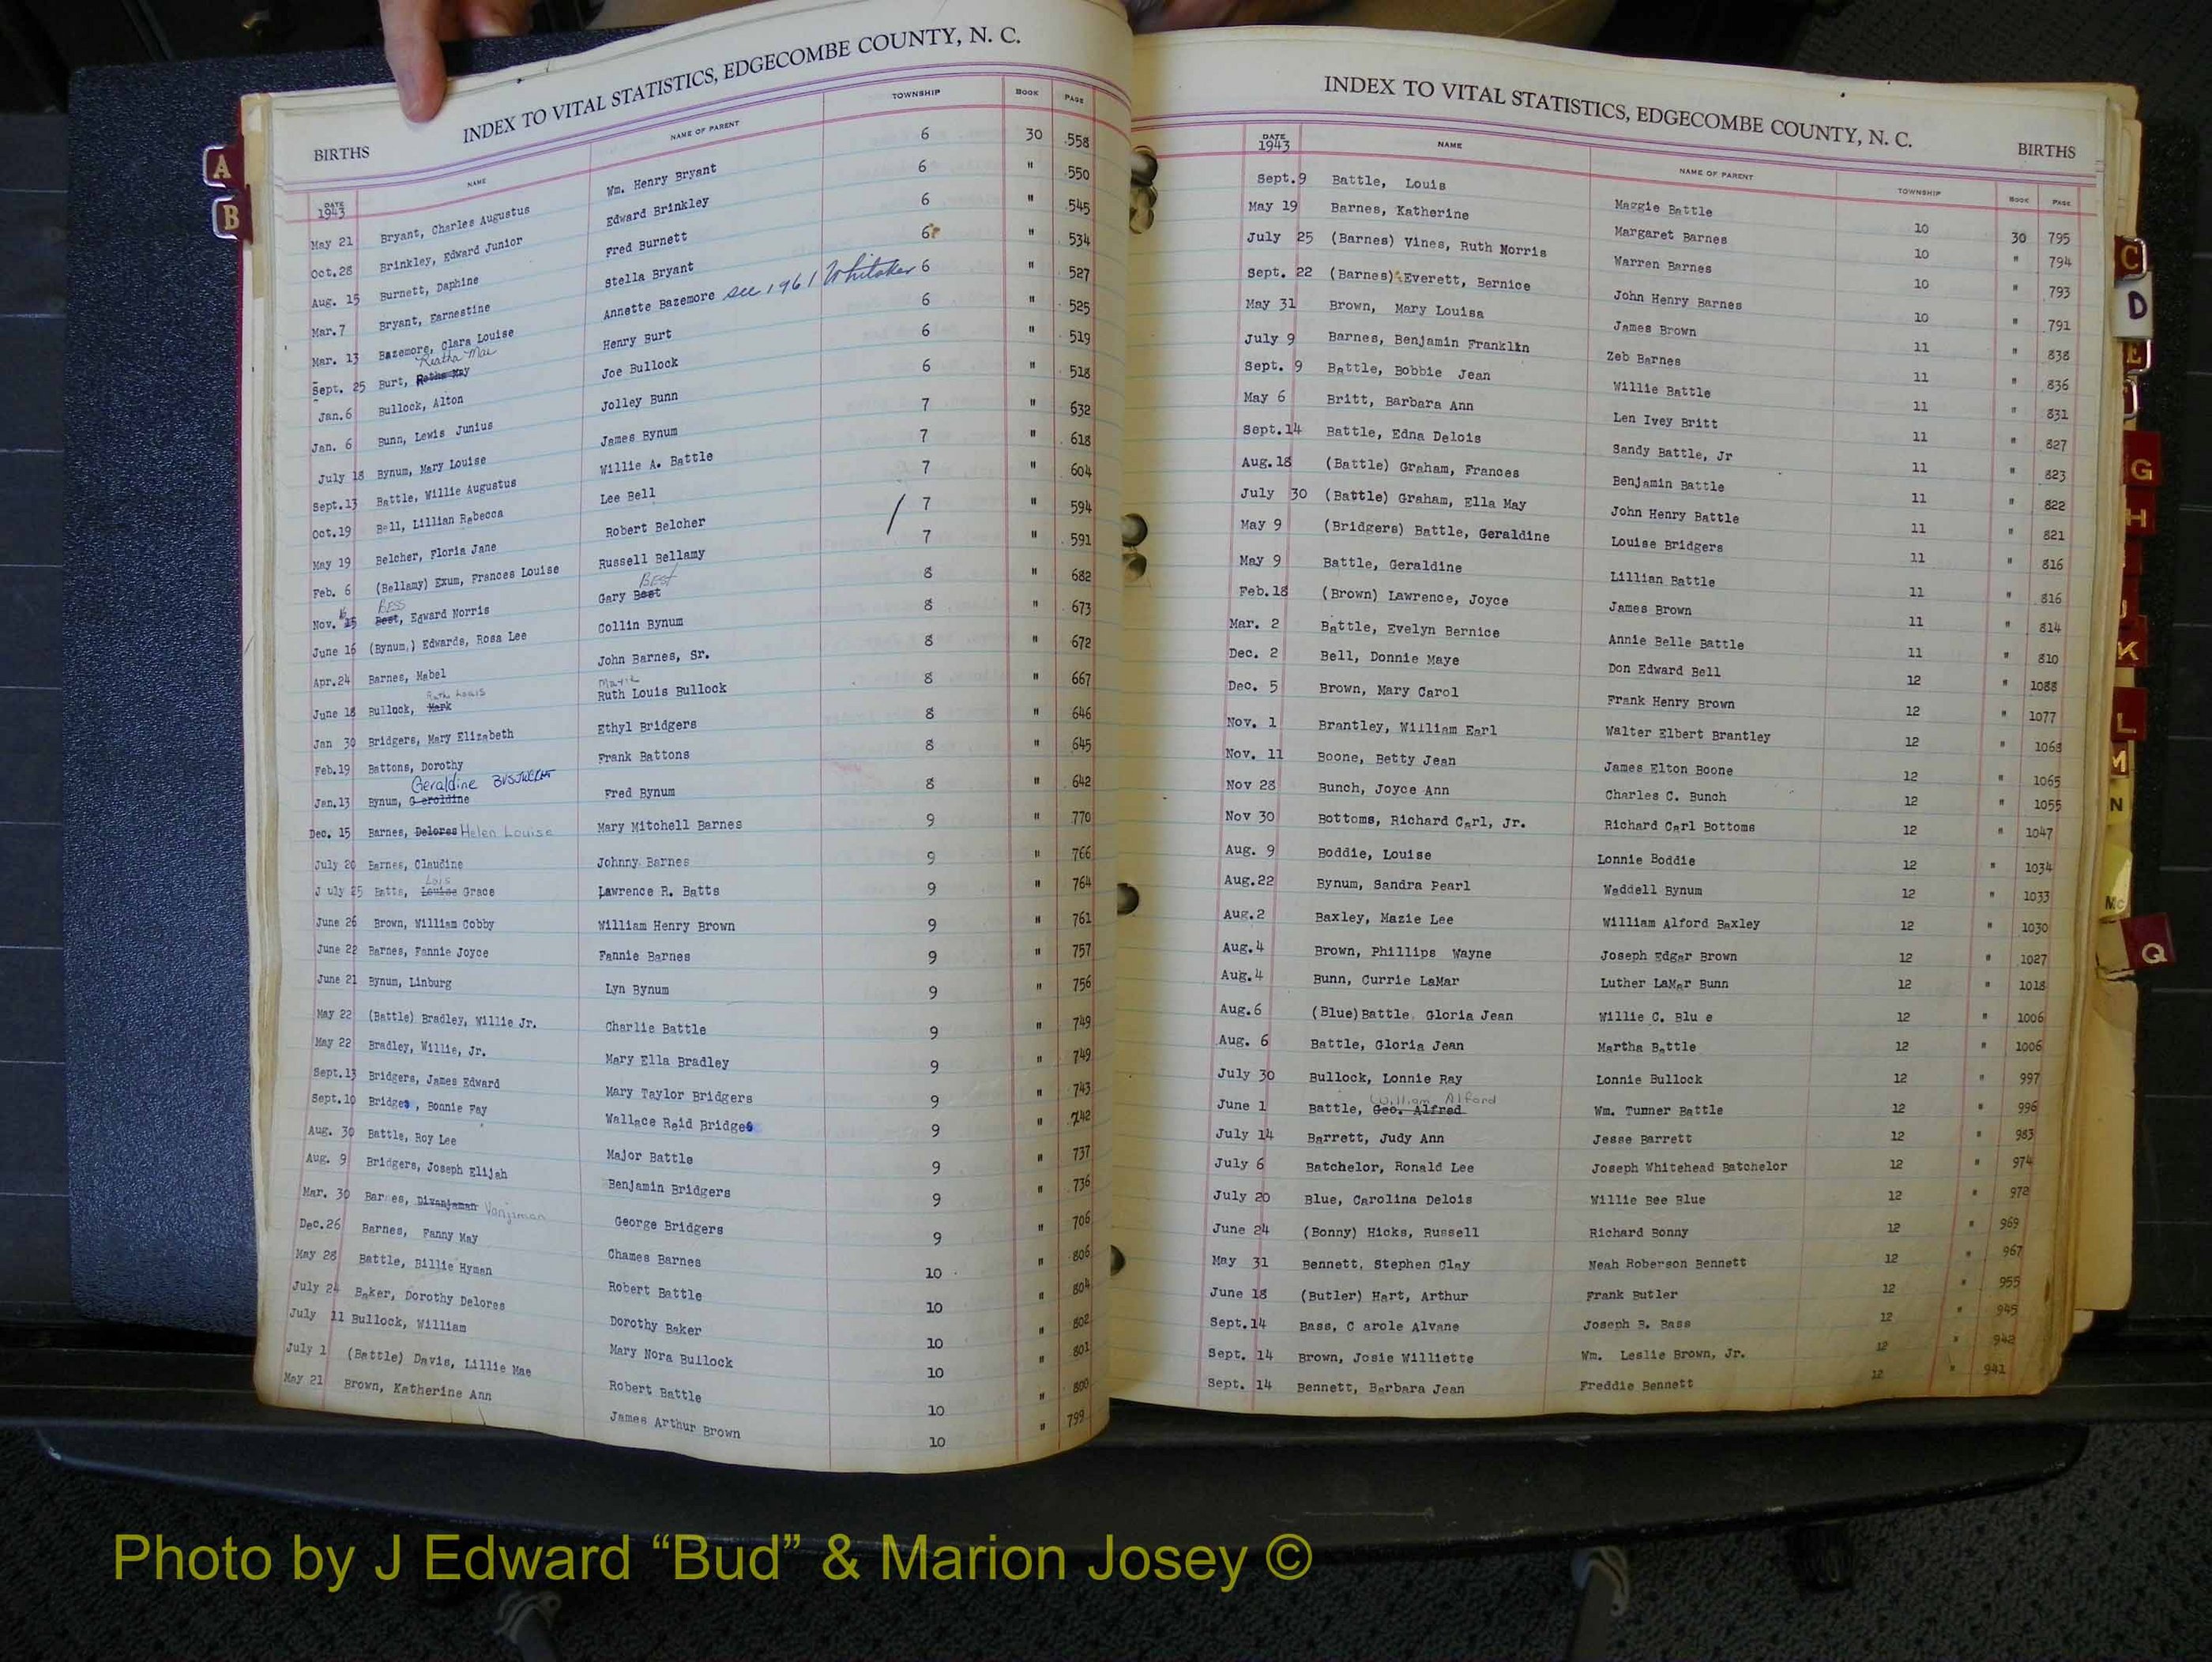 INDEX TO VITAL STATISTICS, EDGECOMBE COUNTY, N. C.
BIRTHS
DATE 1943 NAME NAME OF PARENT TOWNSHIP BOOK PAGE
May 21 Bryant, Charles Augustus Wm. Henry Bryant 6 30 558
Oct.28 Brinkley, Edward Junior Edward Brinkley 6 " 550
Aug. 15 Burnett, Daphine Fred Burnett 6 " 545
Mar.7 Bryant, Earnestine Stella Bryant 6 " 534
Mar. 13 Bazemore, Clara Louise Annette Bazemore see 1961 Whitaker 6 " 527
Reatha Mae
Sept. 25 Burt, Henry Burt 6 " 525
Jan.6 Bullock, Alton Joe Bullock 6 " 519
Jan. 6 Bunn, Lewis Junius Jolley Bunn 6 " 518
July 18 Bynum, Mary Louise James Bynum 7 " 632
Sept.13 Battle, Willie Augustus Willie A. Battle 7 " 618
Oct.19 Bell, Lillian Rebecca Lee Bell 7 " 604
May 19 Belcher, Floria Jane Robert Belcher / 7 " 594
Feb. 6 (Bellamy) Exum, Frances Louise Russell Bellamy 7 " 591
16 BESS BEST
Nov. 15 Best, Edward Norris Gary Best 8 " 682
June 16 (Bynum,) Edwards, Rosa Lee Collin Bynum 8 " 673
Apr.24 Barnes, Mabel John Barnes, Sr. 8 " 672
Ruth Louis Mark
June 18 Bullock, Mark Ruth Louis Bullock 8 " 667
Jan 30 Bridgers, Mary Elizabeth Ethyl Bridgers 8 " 646
Feb.19 Battons, Dorothy Frank Battons 8 " 645
Geraldine
Jan.13 Bynum, Geroldine Fred Bynum 8 " 642
Dec. 15 Barnes, Delores Helen Louise Mary Mitchell Barnes 9 " 770
July 20 Barnes, Claudine Johnny Barnes 9 " 766
Lois
July 25 Batts, Louise Grace Lawrence R. Batts 9 " 764
June 26 Brown, William Cobby William Henry Brown 9 " 761
June 22 Barnes, Fannie Joyce Fannie Barnes 9 " 757
June 21 Bynum, Linburg Lyn Bynum 9 " 756
May 22 (Battle) Bradley, Willie Jr. Charlie Battle 9 " 749
May 22 Bradley, Willie, Jr. Mary Ella Bradley 9 " 749
Sept.13 Bridgers, James Edward Mary Taylor Bridgers 9 " 743
Sept.10 Bridges, Bonnie Fay Wallace Reid Bridges 9 " 742
Aug. 30 Battle, Roy Lee Major Battle 9 " 737
Aug. 9 Bridgers, Joseph Elijah Benjamin Bridgers 9 " 736
Mar. 30 Barnes, Divanjaman Vanjiman George Bridgers 9 " 706
Dec.26 Barnes, Fanny May Chames Barnes 10 " 806
May 28 Battle, Billie Hyman Robert Battle 10 " 804
July 24 Baker, Dorothy Delores Dorothy Baker 10 " 802
July 11 Bullock, William Mary Nora Bullock 10 " 801
July 1 (Battle) Davis, Lillie Mae Robert Battle 10 " 800
May 21 Brown, Katherine Ann James Arthur Brown 10 " 799
INDEX TO VITAL STATISTICS, EDGECOMBE COUNTY, N. C.
BIRTHS
DATE 1943 NAME NAME OF PARENT TOWNSHIP BOOK PAGE
Sept.9 Battle, Louis Maggie Battle 10 30 795
May 19 Barnes, Katherine Margaret Barnes 10 " 794
July 25 (Barnes) Vines, Ruth Morris Warren Barnes 10 " 793
Sept. 22 (Barnes) Everett, Bernice John Henry Barnes 10 " 791
May 31 Brown, Mary Louisa James Brown 11 " 838
July 9 Barnes, Benjamin Franklin Zeb Barnes 11 " 836
Sept. 9 Battle, Bobbie Jean Willie Battle 11 " 831
May 6 Britt, Barbara Ann Len Ivey Britt 11 " 827
Sept.14 Battle, Edna Delois Sandy Battle, Jr 11 " 823
Aug.18 (Battle) Graham, Frances Benjamin Battle 11 " 822
July 30 (Battle) Graham, Ella May John Henry Battle 11 " 821
May 9 (Bridgers) Battle, Geraldine Louise Bridgers 11 " 816
May 9 Battle, Geraldine Lillian Battle 11 " 816
Feb.18 (Brown) Lawrence, Joyce James Brown 11 " 814
Mar. 2 Battle, Evelyn Bernice Annie Belle Battle 11 " 810
Dec. 2 Bell, Donnie Maye Don Edward Bell 12 " 1088
Dec. 5 Brown, Mary Carol Frank Henry Brown 12 " 1077
Nov. 1 Brantley, William Earl Walter Elbert Brantley 12 " 1068
Nov. 11 Boone, Betty Jean James Elton Boone 12 " 1065
Nov 28 Bunch, Joyce Ann Charles C. Bunch 12 " 1055
Nov 30 Bottoms, Richard Carl, Jr. Richard Carl Bottoms 12 " 1047
Aug. 9 Boddie, Louise Lonnie Boddie 12 " 1034
Aug.22 Bynum, Sandra Pearl Waddell Bynum 12 " 1033
Aug.2 Baxley, Mazie Lee William Alford Baxley 12 " 1030
Aug.4 Brown, Phillips Wayne Joseph Edgar Brown 12 " 1027
Aug.4 Bunn, Currie LaMar Luther LaMar Bunn 12 " 1018
Aug.6 (Blue)Battle Gloria Jean Willie C. Blu e 12 " 1006
Aug. 6 Battle, Gloria Jean Martha Battle 12 " 1006
July 30 Bullock, Lonnie Ray Lonnie Bullock 12 " 997
William Alford
June 1 Battle, Geo. Alfred Wm. Turner Battle 12 " 996
July 14 Barrett, Judy Ann Jesse Barrett 12 " 983
July 6 Batchelor, Ronald Lee Joseph Whitehead Batchelor 12 " 974
July 20 Blue, Carolina Delois Willie Bee Blue 12 " 972
June 24 (Bonny) Hicks, Russell Richard Bonny 12 " 969
May 31 Bennett, Stephen Clay Neah Roberson Bennett 12 " 967
June 18 (Butler) Hart, Arthur Frank Butler 12 " 955
Sept.14 Bass, C arole Alvane Joseph B. Bass 12 " 945
Sept. 14 Brown, Josie Williette Wm. Leslie Brown, Jr. 12 " 942
Sept. 14 Bennett, Barbara Jean Freddie Bennett 12 " 941
A
B
C
D
E
G
H
J
K
L
M
N
Mc
Q
Photo by J Edward “Bud” & Marion Josey ©